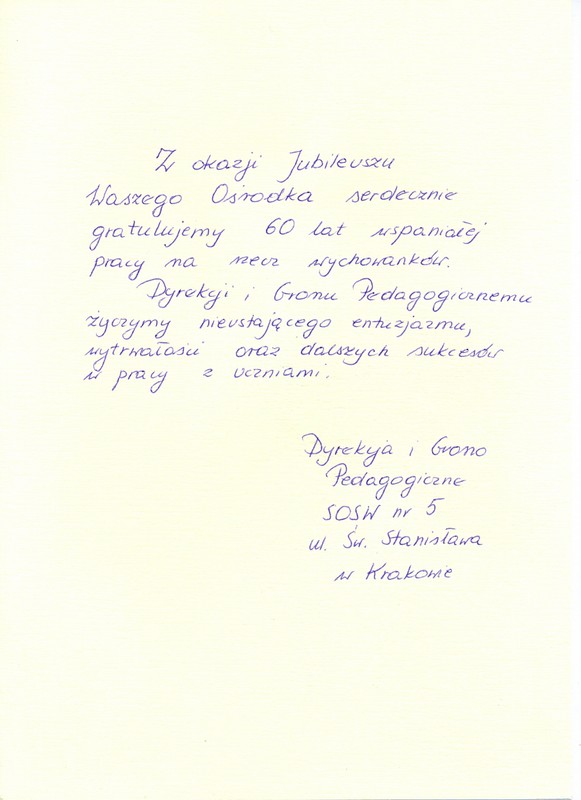 Z okazji Jubileuszu
Waszego Ośrodka serdecznie
gratulujemy 60 lat wspaniałej
pracy na rzecz wychowanków.
Dyrekcji i Gronu Pedagogicznemu
życzymy nieustającego entuzjazmu,
wytrwałości oraz dalszych sukcesów
w pracy z uczniami.
Dyrekcja i Grono
Pedagogiczne
SOSW nr 5
ul. Św. Stanisława
w Krakowie